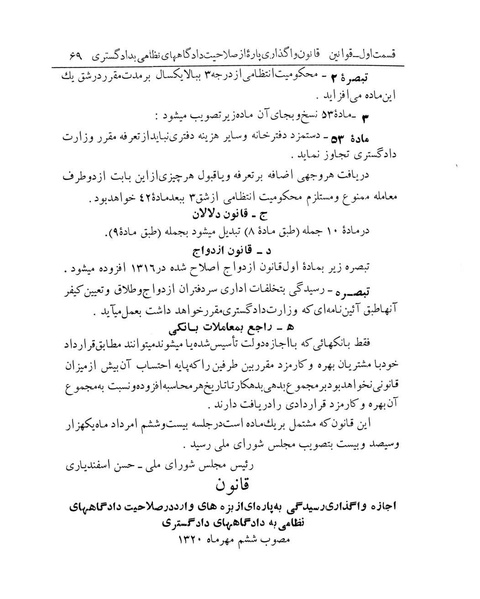 قسمت اول ــ قوانین   قانون واگذاری پارهٔ از صلاحیت دادگاههای نظامی بدادگستری   ۶۹
تبصرهٔ ۲ ــ محکومیت انتظامی از درجه ۳ ببالا یکسال برمدت مقرر در شق یك
این ماده می افزاید .
۳ ــ مادهٔ ۵۳ نسخ و بجای آن ماده زیر تصویب میشود :
مادهٔ ۵۳ ــ دستمزد دفترخانه وسایر هزینه دفتری نباید از تعرفه مقرر وزارت
دادگستری تجاوز نماید .
دریافت هر وجهی اضافه بر تعرفه و یا قبول هر چیزی از این بابت از دو طرف
معامله ممنوع و مستلزم محکومیت انتظامی از شق ۳ ببعد مادهٔ ۴۲ خواهد بود .
ج ــ قانون دلالان
در مادهٔ ۱۰ جمله (طبق مادهٔ ۸) تبدیل میشود بجمله (طبق مادهٔ ۹).
د ــ قانون ازدواج
تبصره زیر بمادهٔ اول قانون ازدواج اصلاح شده در ۱۳۱۶ افزوده میشود .
تبصره ــ رسیدگی بتخلفات اداری سردفتران ازدواج و طلاق و تعیین کیفر
آنها طبق آئین نامه‌ای که وزارت دادگستری مقرر خواهد داشت بعمل میآید .
ه ــ راجع بمعاملات بانکی
فقط بانکهائی که با اجازه دولت تأسیس شده یا میشوند میتوانند مطابق قرارداد
خود با مشتریان بهره و کارمزد مقرر بین طرفین را که پایه احتساب آن بیش از میزان
قانونی نخواهد بود بر مجموع بدهی بدهکار تا تاریخ هر محاسبه افزوده و نسبت به مجموع
آن بهره و کارمزد قراردادی را دریافت دارند .
این قانون که مشتمل بر یك ماده است در جلسه بیست و ششم امرداد ماه یکهزار
و سیصد و بیست بتصویب مجلس شورای ملی رسید .
رئیس مجلس شورای ملی ــ حسن اسفندیاری
قانون
اجازه واگذاری رسیدگی به پاره‌ای از بزه های وارد در صلاحیت دادگاههای
نظامی به دادگاههای دادگستری
مصوب ششم مهرماه ۱۳۲۰